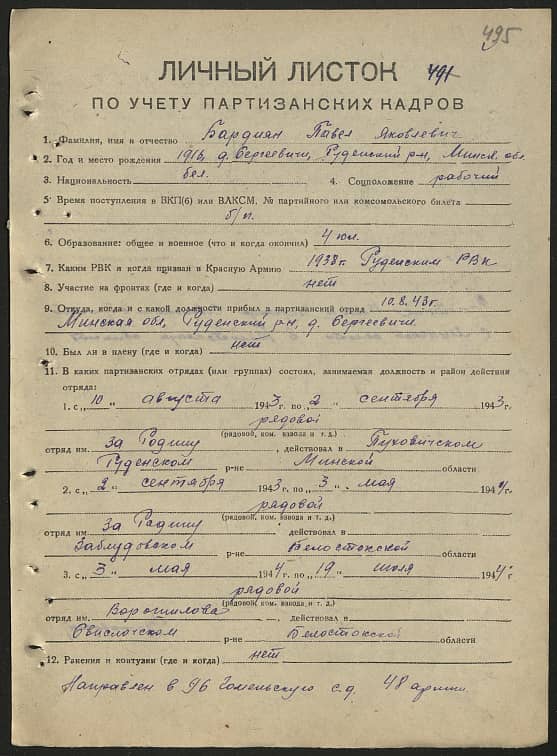 495
ЛИЧНЫЙ ЛИСТОК 491
ПО УЧЕТУ ПАРТИЗАНСКИХ КАДРОВ
1. Фамилия, имя и отчество Бардиян Павел Яковлевич
2. Год и место рождения 1916, д. Сергеевичи, Руденский р-н, Минск. обл.
3. Национальность бел. 4. Соцположение рабочий
5. Время поступления в ВКП(б) или ВЛКСМ, № партийного или комсомольского билета
б/п.
6. Образование: общее и военное (что и когда окончил) 4 кл.
7. Каким РВК и когда призван в Красную Армию 1938г. Руденским РВК
8. Участие на фронтах (где и когда) нет
9. Откуда, когда и с какой должности прибыл в партизанский отряд 10.8.43г.
Минская обл., Руденский р-н, д. Сергеевичи.
10. Был ли в плену (где и когда) нет
11. В каких партизанских отрядах (или группах) состоял, занимаемая должность и район действия
отряда:
1. с „10„ августа 1943 г. по „2„ сентября 1943 г.
рядовой
(рядовой, ком. взвода и т. д.)
отряд им. За Родину, действовал в Пуховичском
Руденском р-не Минской области
2. с „2„ сентября 1943 г. по „3„ мая 1944 г.
рядовой
(рядовой, ком. взвода и т. д.)
отряд им. За Родину, действовал в
Заблудовском р-не Белостокской области
3. с „3„ мая 1944 г. по „19„ июля 1944 г.
рядовой
(рядовой, ком. взвода и т. д.)
отряд им. Ворошилова, действовал в
Свислочском р-не Белостокской области
12. Ранения и контузии (где и когда) нет
Направлен в 96 Гомельскую с.д. 48 армии.